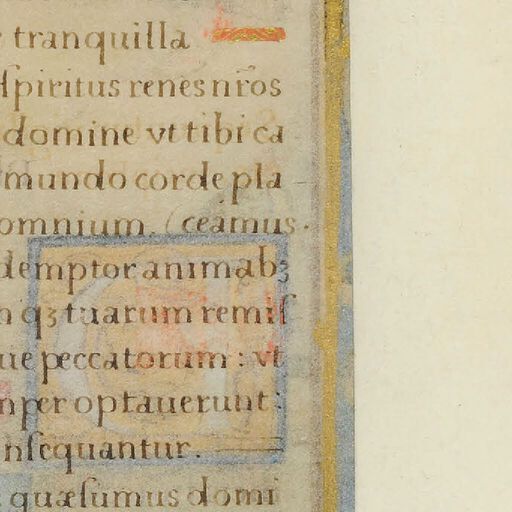 tranquilla
ſpiritus renes nr̃os
domine vt tibi ca
mundo corde pla
omnium. (ceamus.
demptor animabꝫ
qꝫ tuarum remiſ
ue peccatorum : vt
nper optauerunt :
nſequantur.
quæſumus domi